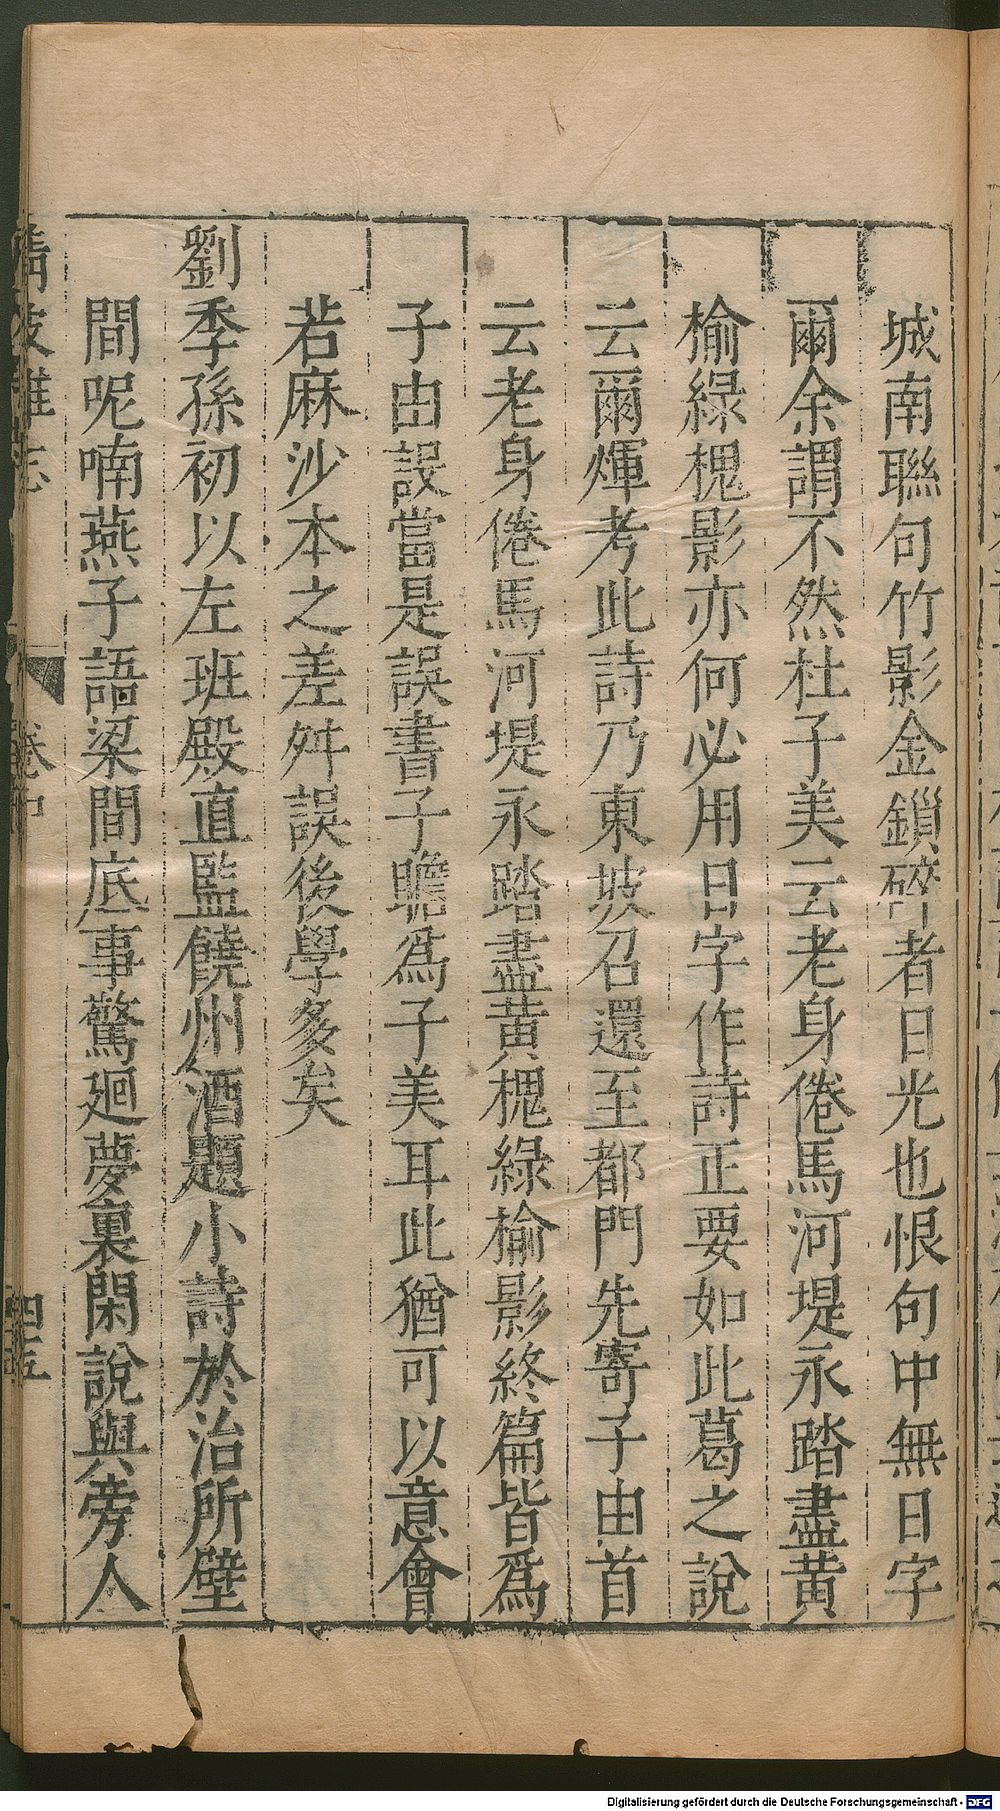 城南聯句竹影金鎖碎者日光也恨句中無日字
爾余謂不然杜子美云老身倦馬河堤永踏盡黄
榆綠槐影亦何必用日字作詩正要如此葛之說
云爾煇考此詩乃東坡召還至都門先寄子由首
云老身倦馬河堤永踏盡黄槐綠榆影終篇皆爲
子由設當是誤書子瞻爲子美耳此猶可以意會
若麻沙本之差舛誤後學多矣
劉季孫初以左班殿直監饒州酒題小詩於治所壁
間呢喃燕子語梁間底事驚廻夢裏閑說與旁人
卷中
四五
Digitalisierung gefördert durch die Deutsche Forschungsgemeinschaft - DFG